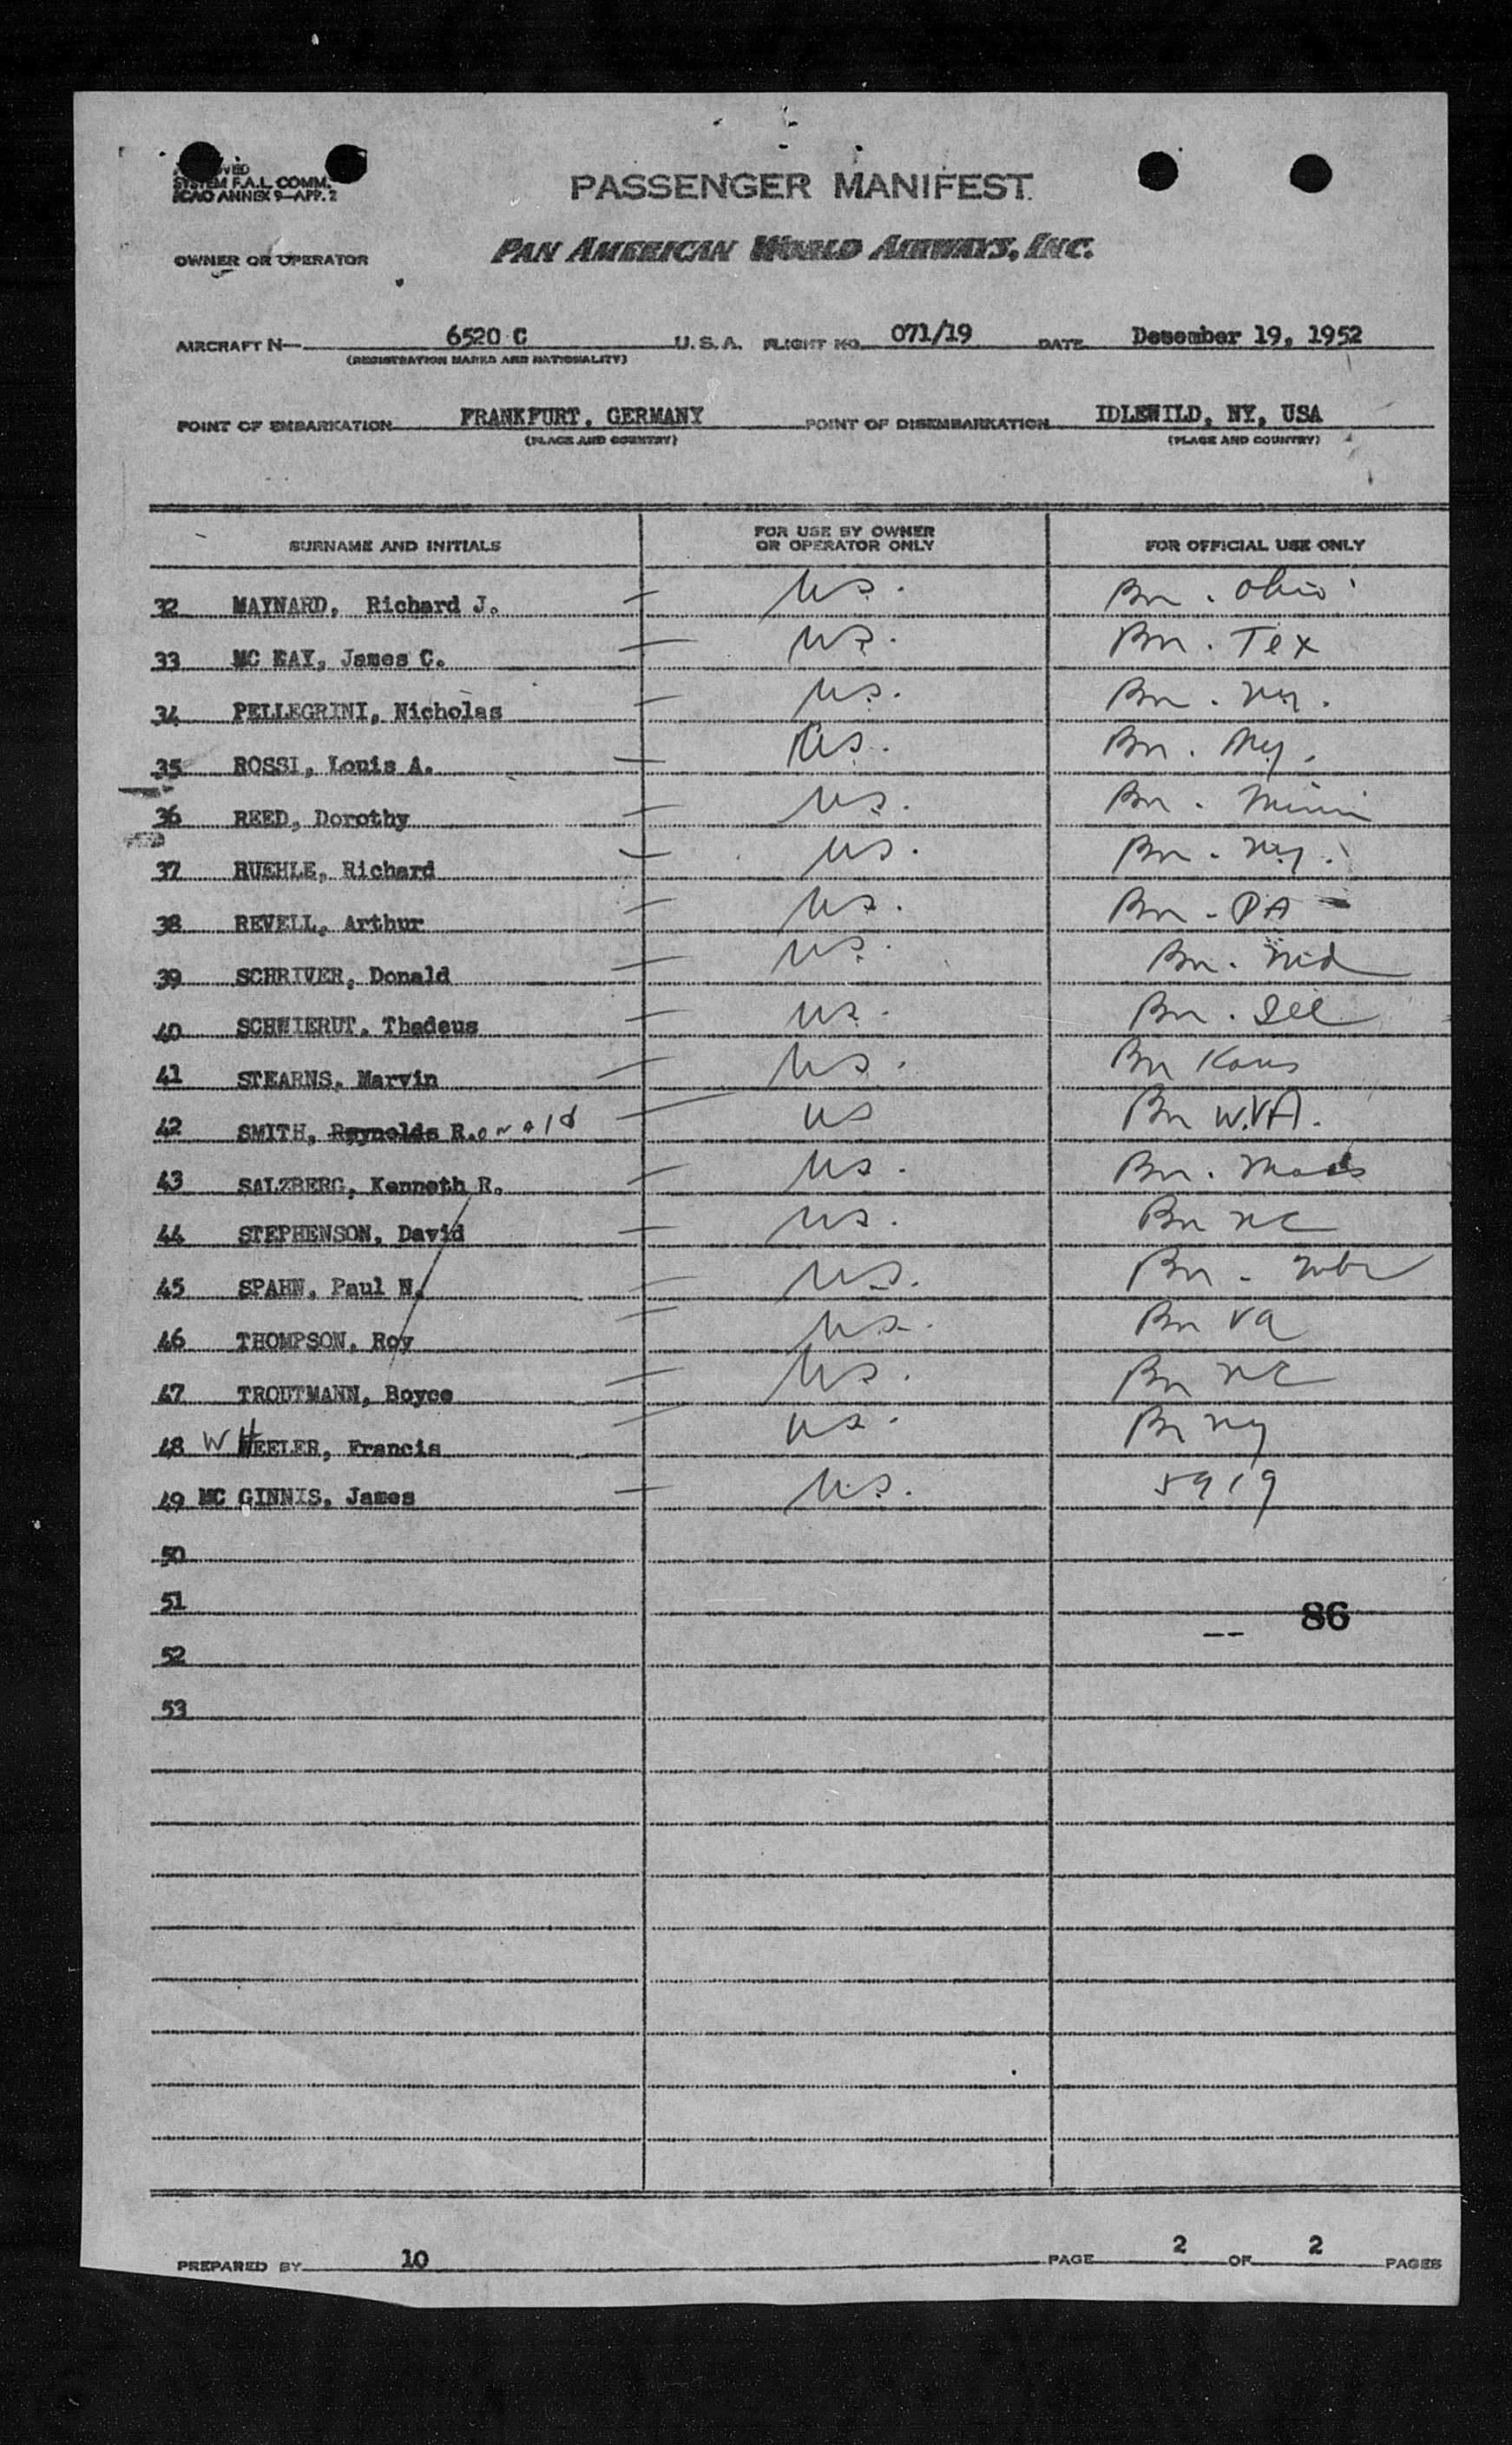 APPROVED
SYSTEM F.A.L. COMM.
ICAO ANNEX 9-APP. 2
PASSENGER MANIFEST
OWNER OR OPERATOR PAN AMERICAN WORLD AIRWAYS, INC.
AIRCRAFT N- 6520 C U. S. A. FLIGHT NO. 071/19 DATE December 19, 1952
(REGISTRATION MARKS AND NATIONALITY)
POINT OF EMBARKATION FRANKFURT, GERMANY POINT OF DISEMBARKATION IDLEWILD, NY, USA
(PLACE AND COUNTRY) (PLACE AND COUNTRY)
SURNAME AND INITIALS FOR USE BY OWNER OR OPERATOR ONLY FOR OFFICIAL USE ONLY
32 MAYNARD, Richard J. — US. Bn. Ohio
33 MC KAY, James C. — US. Bn. Tex
34 PELLEGRINI, Nicholas — US. Bn. NY.
35 ROSSI, Louis A. — US. Bn. NY.
36 REED, Dorothy — US. Bn. Minn
37 RUEHLE, Richard — US. Bn. NY.
38 REVELL, Arthur — US. Bn. PA
39 SCHRIVER, Donald — US. Bn.
40 SCHWIERUT, Thadeus — US. Bn. Ill
41 STEARNS, Marvin — US. Bn Kans
42 SMITH, Reynolds R.onald — US Bn W.VA.
43 SALZBERG, Kenneth R. — US. Bn. Mass
44 STEPHENSON, David — US. Bn NC
45 SPAHN, Paul N. — US. Bn. Nebr
46 THOMPSON, Roy — US. Bn Va
47 TROUTMANN, Boyce — US. Bn NC
48 WHEELER, Francis — US. Bn NY
49 MC GINNIS, James — US. 5919
50
51
86
52
53
PREPARED BY 10 PAGE 2 OF 2 PAGES